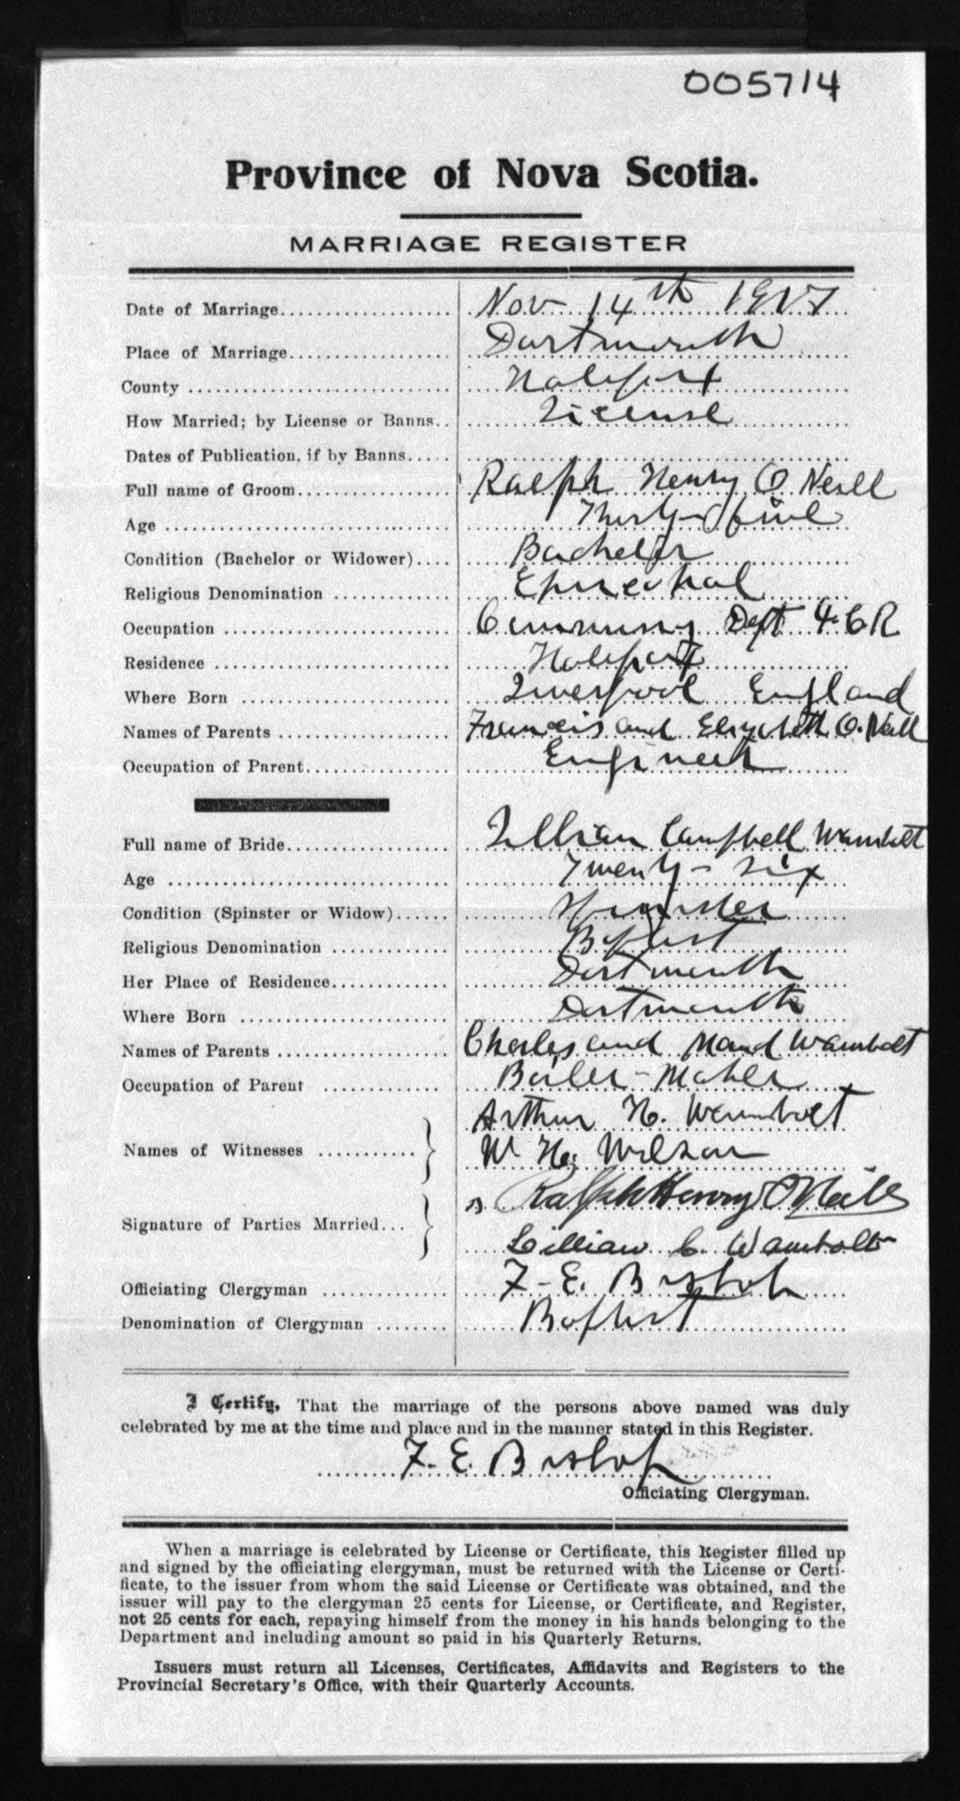 005714
Province of Nova Scotia.
MARRIAGE REGISTER
Date of Marriage Nov 14th 1917
Place of Marriage Dartmouth
County Halifax
How Married; by License or Banns License
Dates of Publication, if by Banns
Full name of Groom Ralph Henry O Neill
Age Thirty-five
Condition (Bachelor or Widower) Bachelor
Religious Denomination Episcopal
Occupation Dept
Residence Halifax
Where Born Liverpool England
Names of Parents Francis and Elizabeth O. Neill
Occupation of Parent Engineer
Full name of Bride Lillian Campbell Wambolt
Age Twenty-six
Condition (Spinster or Widow) Spinster
Religious Denomination Baptist
Her Place of Residence Dartmouth
Where Born Dartmouth
Names of Parents Charles and Maud Wambolt
Occupation of Parent Boiler-Maker
Names of Witnesses Arthur H. Wambolt
W H. Wilson
Signature of Parties Married Ralph Henry O'Neill
Lillian C. Wambolt
Officiating Clergyman F-E. Bishop
Denomination of Clergyman Baptist
I Certify, That the marriage of the persons above named was duly
celebrated by me at the time and place and in the manner stated in this Register.
F. E. Bishop
Officiating Clergyman.
When a marriage is celebrated by License or Certificate, this Register filled up
and signed by the officiating clergyman, must be returned with the License or Certi-
ficate, to the issuer from whom the said License or Certificate was obtained, and the
issuer will pay to the clergyman 25 cents for License, or Certificate, and Register,
not 25 cents for each, repaying himself from the money in his hands belonging to the
Department and including amount so paid in his Quarterly Returns.
Issuers must return all Licenses, Certificates, Affidavits and Registers to the
Provincial Secretary's Office, with their Quarterly Accounts.